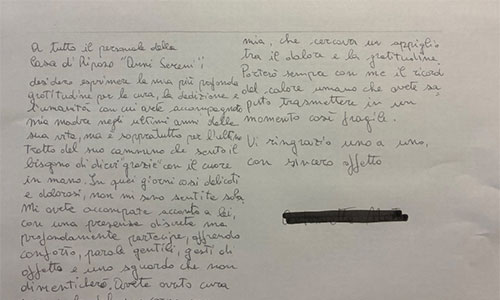 A tutto il personale della
Casa di Riposo "Anni Sereni",
desidero esprimere la mia più profonda
gratitudine per la cura, la dedizione e
l'umanità con cui avete accompagnato
mia madre negli ultimi anni della
sua vita, ma è soprattutto per l'ultimo
tratto del suo cammino che sento il
bisogno di dirvi "grazie" con il cuore
in mano. In quei giorni così delicati
e dolorosi, non mi sono sentita sola.
Mi avete accompagnato accanto a lei,
con una presenza discreta ma
profondamente partecipe, offrendo
conforto, parole gentili, gesti di
affetto e uno sguardo che non
dimenticherò. Avete avuto cura
mia, che cercavo un appiglio
tra il dolore e la gratitudine.
Porterò sempre con me il ricordo
del calore umano che avete sa_
puto trasmettere in un
momento così fragile.
Vi ringrazio uno a uno,
con sincero affetto